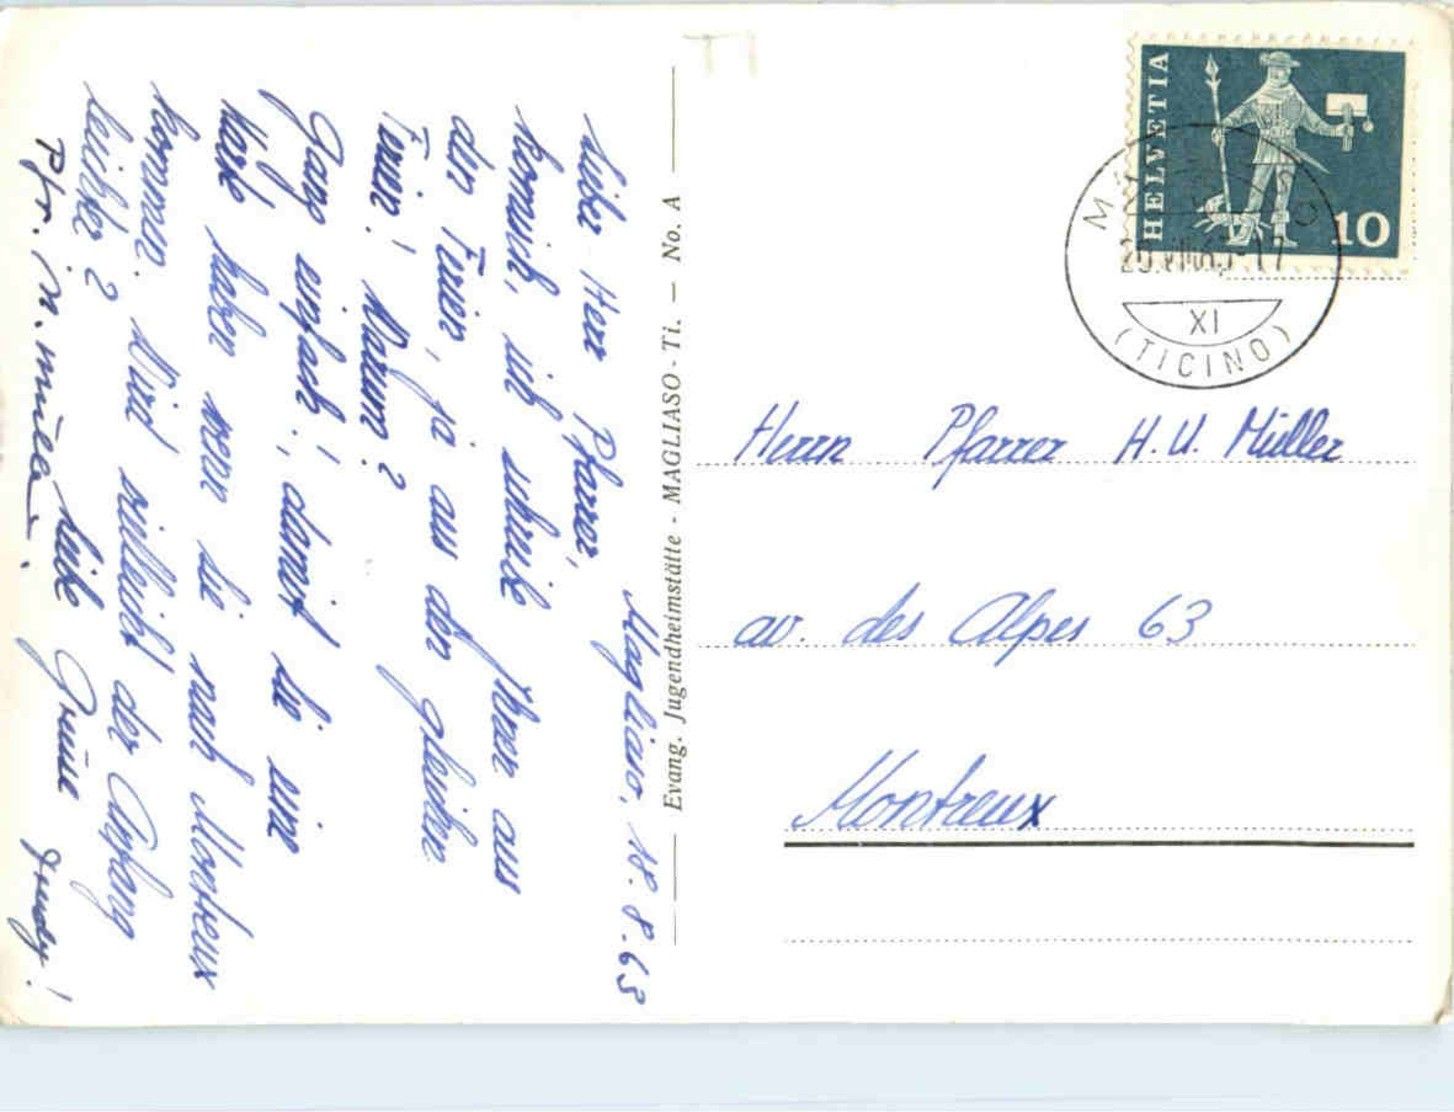 Magliaso, 18.8.63
Lieber Herr Pfarrer,
Komisch, ich schreibe Ihnen aus
den Ferien, ja aus den gleichen
Ferien! Warum?
Ganz einfach!, damit Sie eine
Karte haben wenn Sie nach Montreux
kommen. Wird vielleicht der Anfang
leichter?
Liebe Grüsse
Pfr. M. Müller.
Trudy!
Evang. Jugendheimstätte - MAGLIASO - Ti. — No. A
HELVETIA
10
XI
(TICINO)
Herrn Pfarrer H. U. Müller
av. des Alpes 63
Montreux
TI